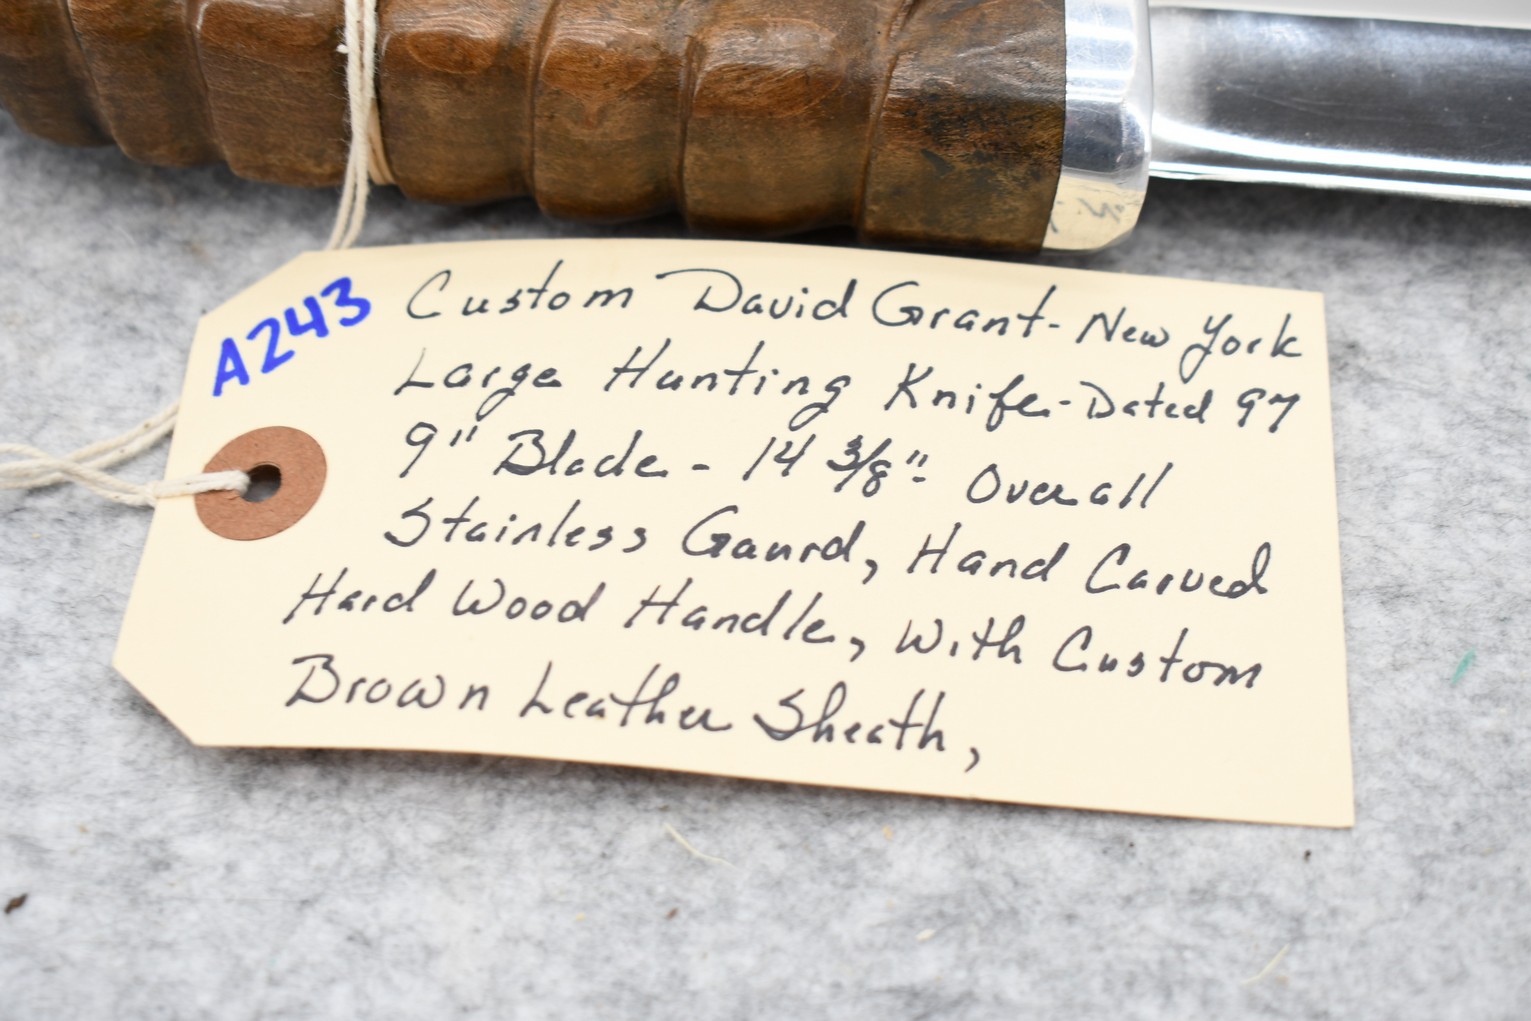 A243
Custom David Grant- New York
Large Hunting Knife-Dated 97
9" Blade - 14 3/8"- Overall
Stainless Gaurd, Hand Carved
Hard Wood Handle, With Custom
Brown Leather Sheath,